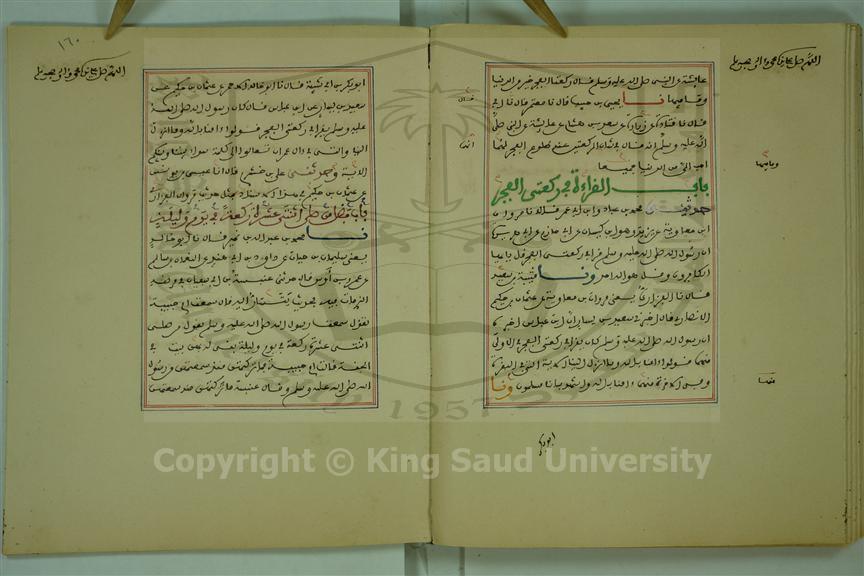 عايشة عن النبي صلى الله عليه وسلم قال ركعتا الفجر خير من الدنيا
وما فيها نا يحيى بن حبيب قال نا معتمر قال نا ابي
قال نا قتادة عن زرارة عن سعد بن هشام عن عايشة عن النبي صلى
الله عليه وسلم انه قال في شان الركعتين عند طلوع الفجر لهما
احب الي من الدنيا جميعا
باب القراءة في ركعتي الفجر
حدثني محمد بن عباد وابن ابي عمر قالا نا مروان
ابن معاوية عن يزيد هو ابن كيسان عن ابي حازم عن ابي هريرة
ان رسول الله صلى الله عليه وسلم قرا في ركعتي الفجر قل يا ايها
الكافرون وقل هو الله احد ونا قتيبة بن سعيد
قال نا الفزاري يعني مروان بن معاوية عن عثمان بن حكيم
الانصاري قال اخبرني سعيد بن يسار ان ابن عباس اخبره
ان رسول الله صلى الله عليه وسلم كان يقرا في ركعتي الفجر في الاولى
منهما قولوا امنا بالله وما انزل الينا الاية التي في البقرة
وفي الاخرة منهما امنا بالله واشهد بانا مسلمون ونا
ابو بكر
١٦٠
ابو بكر بن ابي شيبة قال نا ابو خالد الاحمر عن عثمان بن حكيم عن
سعيد بن يسار عن ابن عباس قال كان رسول الله صلى الله
عليه وسلم يقرا في ركعتي الفجر قولوا امنا بالله وما انزل
الينا والتي في ال عمران تعالوا الى كلمة سواء بيننا وبينكم
الاية وحدثني علي بن خشرم قال انا عيسى بن يونس
عن عثمان بن حكيم في هذا الاسناد بمثل حديث مروان الفزاري
باب فضل من صلى اثنتي عشرة ركعة في يوم وليلة
نا محمد بن عبد الله بن نمير قال نا ابو خالد
يعني سليمان بن حيان عن داود بن ابي هند عن النعمان بن سالم
عن عمرو بن اوس قال حدثني عنبسة بن ابي سفيان في مرضه
الذي مات فيه بحديث يتسار اليه قال سمعت ام حبيبة
تقول سمعت رسول الله صلى الله عليه وسلم يقول من صلى
اثنتي عشرة ركعة في يوم وليلة بني له بهن بيت في
الجنة قالت ام حبيبة فما تركتهن منذ سمعتهن من رسول
الله صلى الله عليه وسلم وقال عنبسة فما تركتهن منذ سمعتهن
1957
Copyright © King Saud University